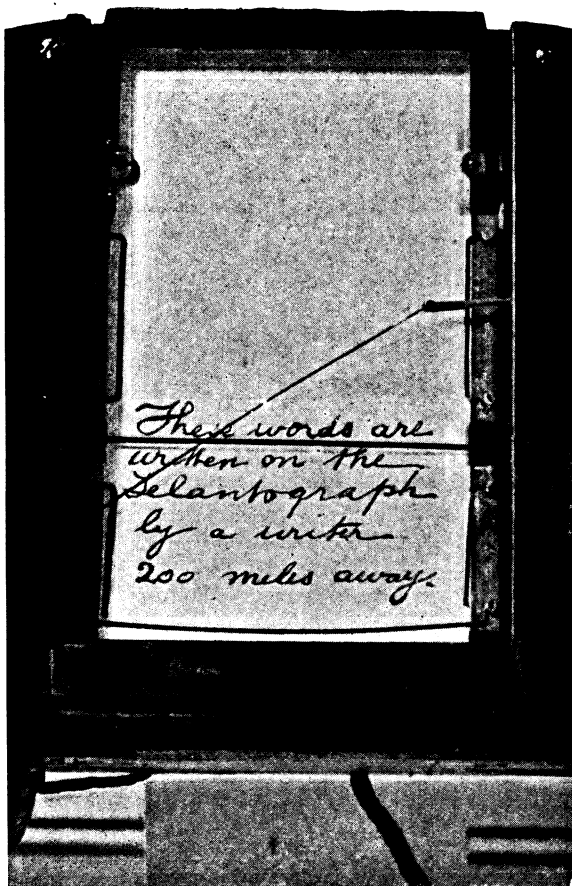 These words are
written on the
Telautograph
by a writer
200 miles away.